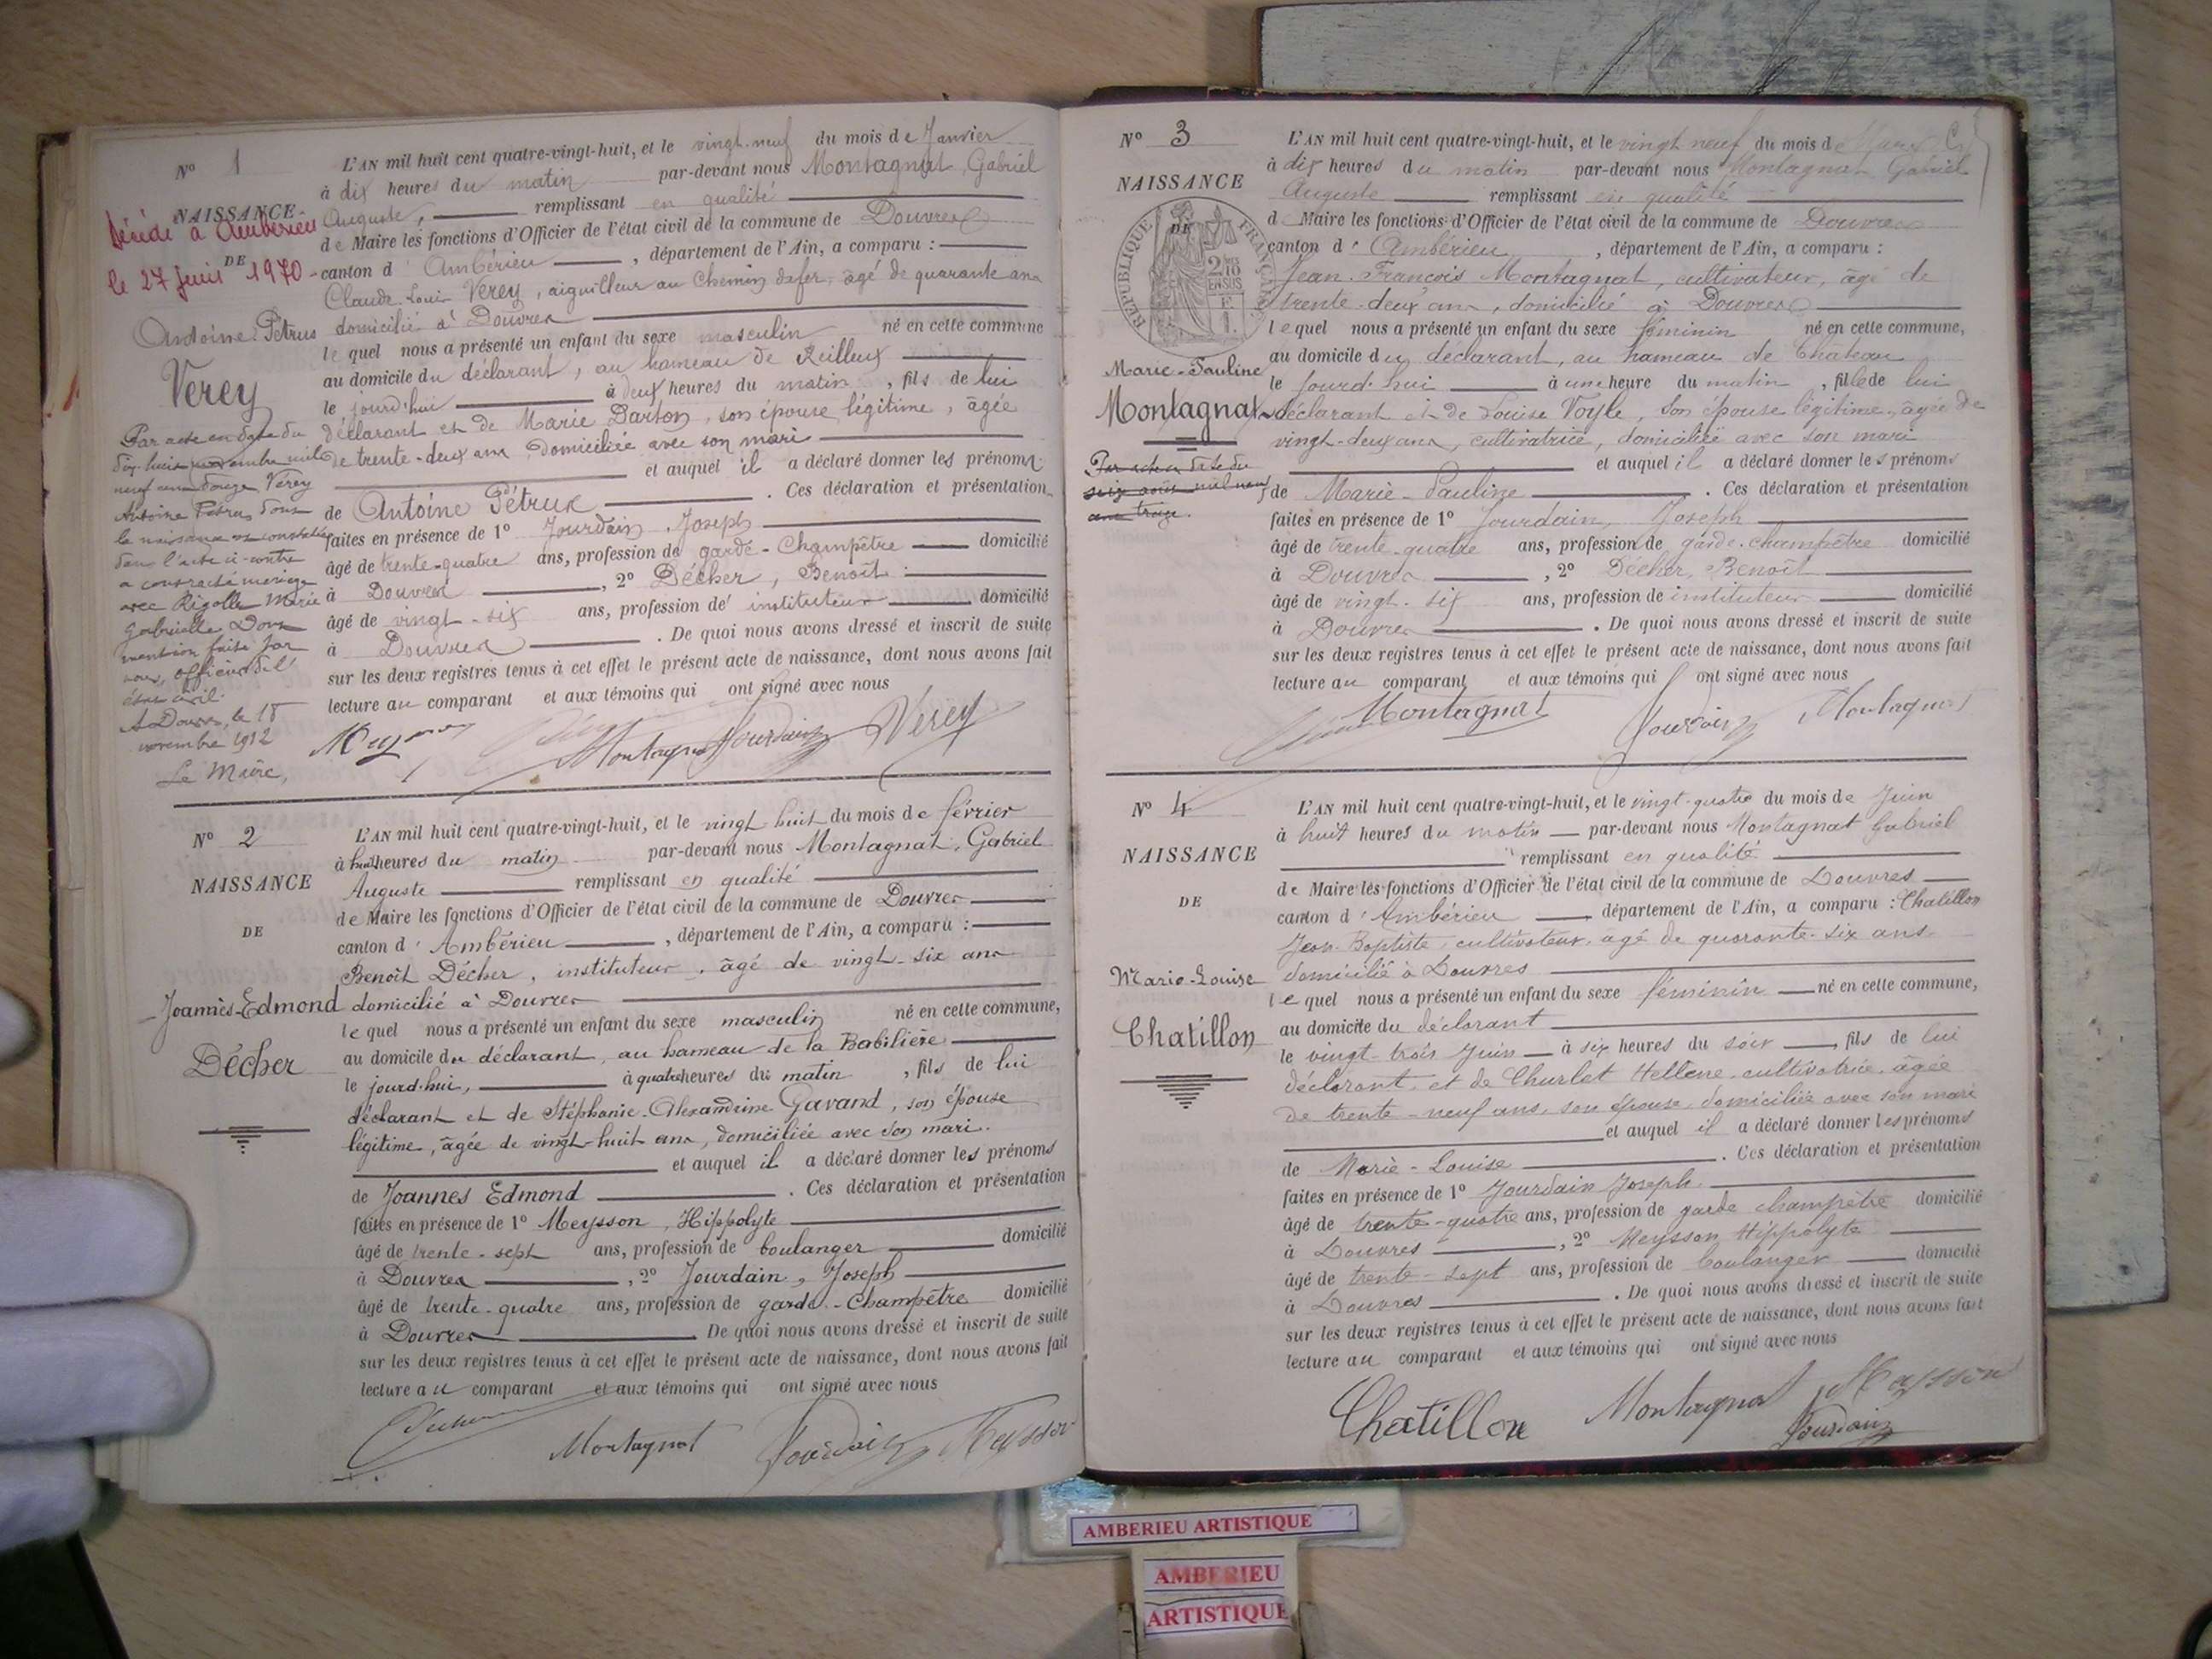 N° 1
NAISSANCE
DE
Décédé à Ambérieu
le 27 Juin 1970
Antoine Pétrus
Verey
Par acte en date du
dix-huit novembre mil
neuf cent douze Verey
Antoine Petrus dont
la naissance est constatée
dans l'acte ci-contre
a contracté mariage
avec Rigolle Marie
Gabrielle Dont
mention faite par
nous, officier de l'
état civil.
A Douvres, le 18
novembre 1912
Le Maire,
L'AN mil huit cent quatre-vingt-huit, et le vingt-neuf du mois de Janvier
à dix heures du matin par-devant nous Montagnat, Gabriel
Auguste, remplissant en qualité
de Maire les fonctions d'Officier de l'état civil de la commune de Douvres
canton d'Ambérieu, département de l'Ain, a comparu :
Claude Louis Verey, aiguilleur au Chemin de fer, âgé de quarante ans
domicilié à Douvres
lequel nous a présenté un enfant du sexe masculin né en cette commune
au domicile du déclarant, au hameau de Reilleux
le jourd'hui à deux heures du matin, fils de lui
déclarant et de Marie Darton, son épouse légitime, âgée
de trente-deux ans, domiciliée avec son mari
et auquel il a déclaré donner les prénoms
de Antoine Pétrus. Ces déclaration et présentation
faites en présence de 1° Jourdain, Joseph
âgé de trente-quatre ans, profession de garde-Champêtre domicilié
à Douvres, 2° Décher, Benoît
âgé de vingt-six ans, profession de instituteur domicilié
à Douvres. De quoi nous avons dressé et inscrit de suite
sur les deux registres tenus à cet effet le présent acte de naissance, dont nous avons fait
lecture au comparant et aux témoins qui ont signé avec nous
Montagnat Jourdain Verey
N° 2
NAISSANCE
DE
Joannès-Edmond
Décher
L'AN mil huit cent quatre-vingt-huit, et le vingt huit du mois de février
à huit heures du matin par-devant nous Montagnat, Gabriel
Auguste remplissant en qualité
de Maire les fonctions d'Officier de l'état civil de la commune de Douvres
canton d'Ambérieu, département de l'Ain, a comparu :
Benoît Décher, instituteur, âgé de vingt-six ans
domicilié à Douvres
lequel nous a présenté un enfant du sexe masculin né en cette commune,
au domicile du déclarant, au hameau de la Babilière
le jourd'hui, à quatre heures du matin, fils de lui
déclarant et de Stéphanie-Alexandrine Gavand, son épouse
légitime, âgée de vingt-huit ans, domiciliée avec son mari.
et auquel il a déclaré donner les prénoms
de Joannes Edmond. Ces déclaration et présentation
faites en présence de 1° Meysson, Hippolyte
âgé de trente-sept ans, profession de boulanger domicilié
à Douvres, 2° Jourdain, Joseph
âgé de trente-quatre ans, profession de garde-Champêtre domicilié
à Douvres De quoi nous avons dressé et inscrit de suite
sur les deux registres tenus à cet effet le présent acte de naissance, dont nous avons fait
lecture au comparant et aux témoins qui ont signé avec nous
Montagnat Jourdain Meysson
N° 3
NAISSANCE
DE
RÉPUBLIQUE FRANÇAISE
2/10 EN SUS
Marie-Pauline
Montagnat
Par acte en date du
seize août mil neuf
cent treize.
L'AN mil huit cent quatre-vingt-huit, et le vingt neuf du mois de Mars
à dix heures du matin par-devant nous Montagnat Gabriel
Auguste remplissant en qualité
de Maire les fonctions d'Officier de l'état civil de la commune de Douvres
canton d'Ambérieu, département de l'Ain, a comparu :
Jean-François Montagnat, cultivateur, âgé de
trente-deux ans, domicilié à Douvres
lequel nous a présenté un enfant du sexe féminin né en cette commune,
au domicile du déclarant, au hameau de Château
le jourd'hui à une heure du matin, fille de lui
déclarant et de Louise Voyle, son épouse légitime, âgée de
vingt-deux ans, cultivatrice, domiciliée avec son mari
et auquel il a déclaré donner les prénoms
de Marie-Pauline. Ces déclaration et présentation
faites en présence de 1° Jourdain, Joseph
âgé de trente-quatre ans, profession de garde-champêtre domicilié
à Douvres, 2° Décher, Benoît
âgé de vingt-six ans, profession de instituteur domicilié
à Douvres. De quoi nous avons dressé et inscrit de suite
sur les deux registres tenus à cet effet le présent acte de naissance, dont nous avons fait
lecture au comparant et aux témoins qui ont signé avec nous
Montagnat Jourdain Montagnat
N° 4
NAISSANCE
DE
Marie-Louise
Chatillon
L'AN mil huit cent quatre-vingt-huit, et le vingt-quatre du mois de Juin
à huit heures du matin par-devant nous Montagnat Gabriel
remplissant en qualité
de Maire les fonctions d'Officier de l'état civil de la commune de Douvres
canton d'Ambérieu département de l'Ain, a comparu : Chatillon
Jean-Baptiste, cultivateur, âgé de quarante-six ans
domicilié à Douvres
lequel nous a présenté un enfant du sexe féminin né en cette commune,
au domicile du déclarant
le vingt-trois Juin à six heures du soir, fils de lui
déclarant, et de Churlet Hellene, cultivatrice, âgée
de trente-neuf ans, son épouse, domiciliée avec son mari
et auquel il a déclaré donner les prénoms
de Marie-Louise. Ces déclaration et présentation
faites en présence de 1° Jourdain Joseph
âgé de trente-quatre ans, profession de garde champêtre domicilié
à Douvres, 2° Meysson Hippolyte
âgé de trente-sept ans, profession de boulanger domicilié
à Douvres. De quoi nous avons dressé et inscrit de suite
sur les deux registres tenus à cet effet le présent acte de naissance, dont nous avons fait
lecture au comparant et aux témoins qui ont signé avec nous
Chatillon Montagnat Meysson
Jourdain
AMBERIEU ARTISTIQUE
AMBERIEU
ARTISTIQUE